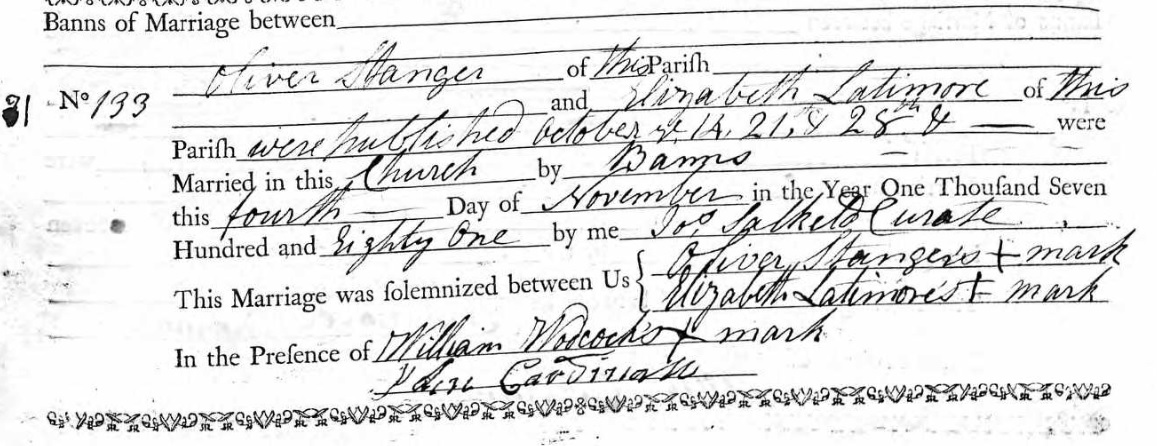 Banns of Marriage between
Oliver Stanger of this Pariſh
31 No 133 and Elizabeth Latimore of this
Pariſh were published October ye 14, 21, & 28th & — were
Married in this Church by Banns
this fourth Day of November in the Year One Thouſand Seven
Hundred and Eighty One by me Jos. Salkeld Curate
This Marriage was ſolemnized between Us { Oliver Stanger's + mark
Elizabeth Latimore's + mark
In the Preſence of William Wodcock's + mark